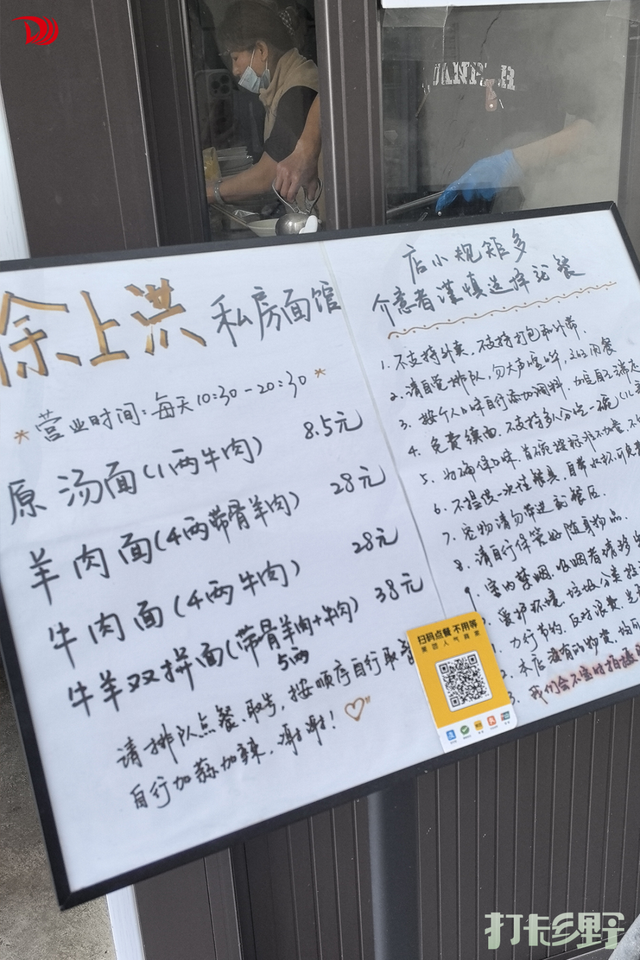 余上洪 私房面馆
*营业时间：每天10:30-20:30*
原汤面（1两牛肉） 8.5元
羊肉面（4两带骨羊肉） 28元
牛肉面（4两牛肉） 28元
牛羊双拼面（带骨羊肉+牛肉） 38元
5两
请排队点餐、取号，按顺序自行取
自行加蒜加辣，谢谢！
店小规矩多
介意者谨慎选择就餐
1. 不支持外卖，不支持打包和外带.
2. 请自觉排队，勿大声喧哗，文明用餐
3. 按个人口味自行添加调料，加完自己
4. 免费续面，不支持多人分吃一碗
5. 为确保口味，首碗按标准
6. 不提供一次性餐具，自带水杯
7. 宠物请勿带进就餐区.
8. 请自行保管好随身物品.
室内禁烟，吸烟者请移
爱护环境，垃圾分类
力行节约，反对浪费，
2. 本店没有
3 我们会不定时
扫码点餐 不用等
美团人气商家
打卡乡野